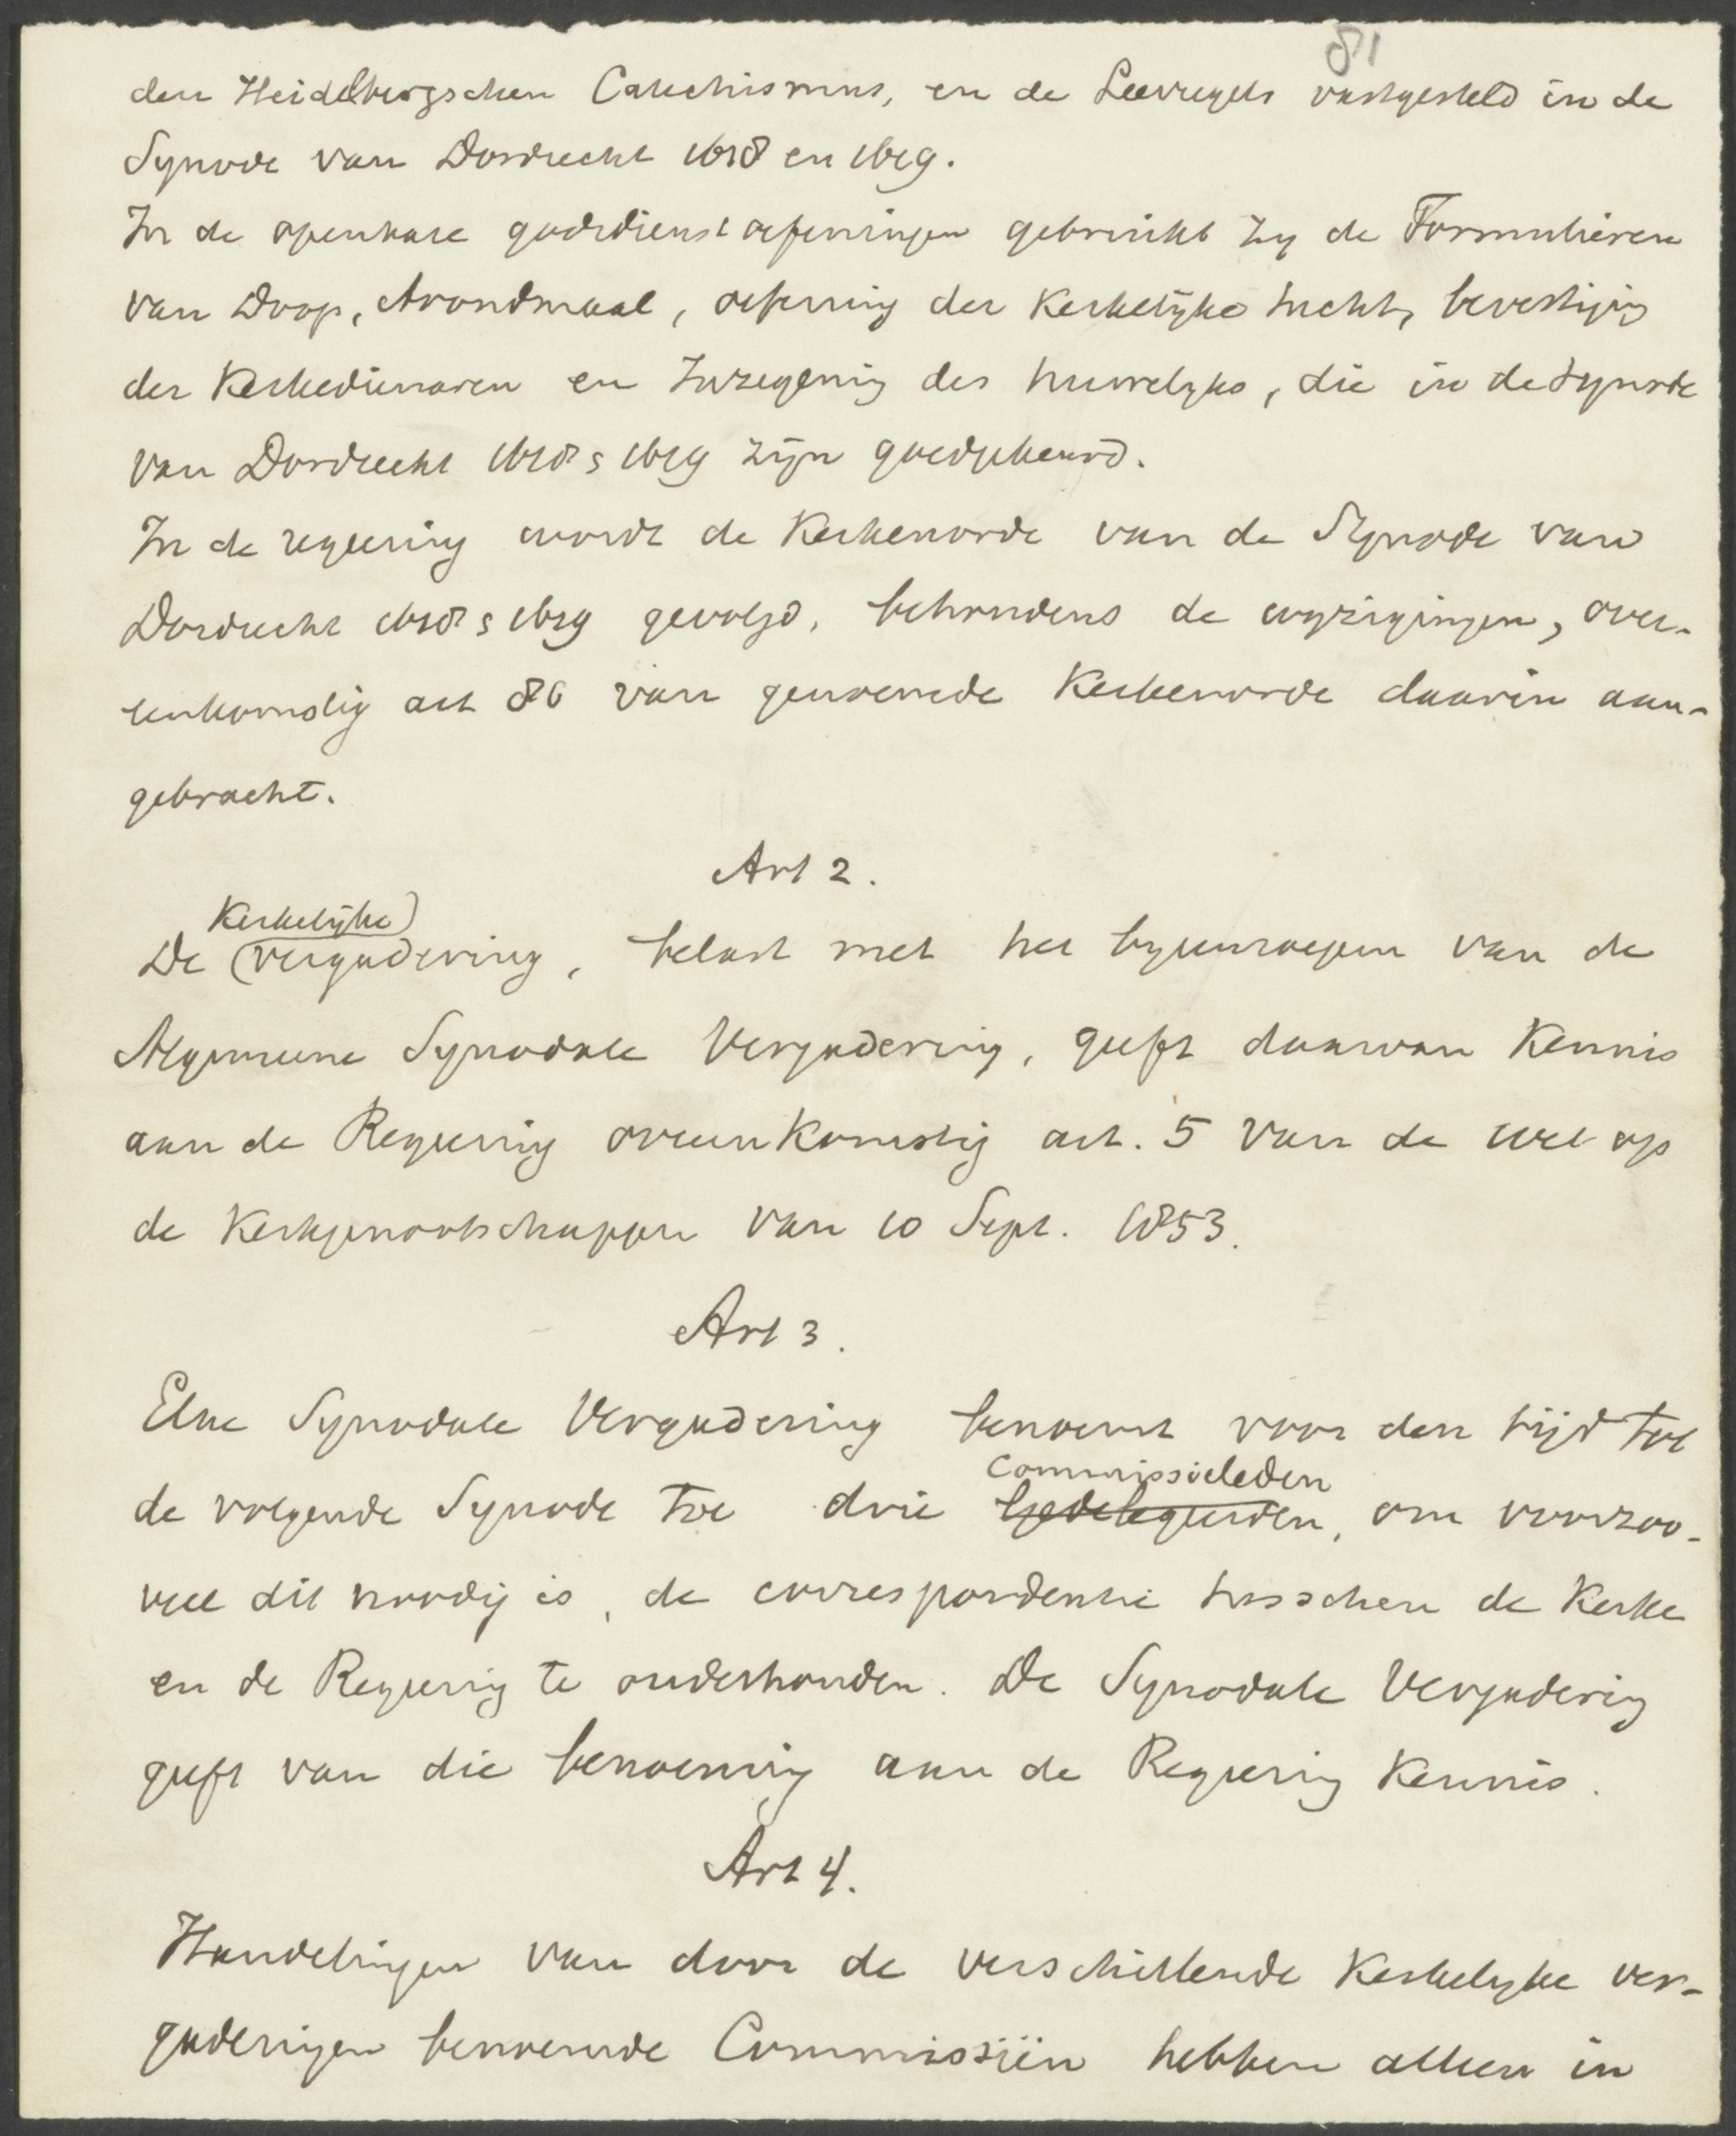 81
den Heidelbergschen Catechismus, en de Leerregels vastgesteld in de
Synode van Dordrecht 1618 en 1619.
In de openbare godsdienstoefeningen gebruikt zy de Formulieren
van Doop, Avondmaal, oefening der Kerkelijke tucht, bevestiging
der Kerkedienaren en Inzegening des huwelyks, die in de Synode
van Dordrecht 1618 & 1619 zijn goedgekeurd.
In de regeering wordt de Kerkenorde van de Synode van
Dordrecht 1618 & 1619 gevolgd, behoudens de wyzigingen, over-
eenkomstig art 86 van genoemde Kerkenorde daarin aan-
gebracht.
Art 2.
Kerkelijke
De vergadering, belast met het byeenroepen van de
Algemeene Synodale Vergadering, geeft daarvan Kennis
aan de Regeering overeenkomstig art. 5 van de wet op
de Kerkgenootschappen van 10 Sept. 1853.
Art 3.
Elke Synodale Vergadering benoemt voor den tijd tot
Commissieleden
de volgende Synode toe drie gedelegeerden, om voorzoo-
veel dit noodig is, de correspondentie tusschen de Kerke
en de Regeering te onderhouden. De Synodale Vergadering
geeft van die benoeming aan de Regeering Kennis.
Art 4.
Handelingen van door de verschillende Kerkelyke ver-
gaderingen benoemde Commissiën hebben alleen in